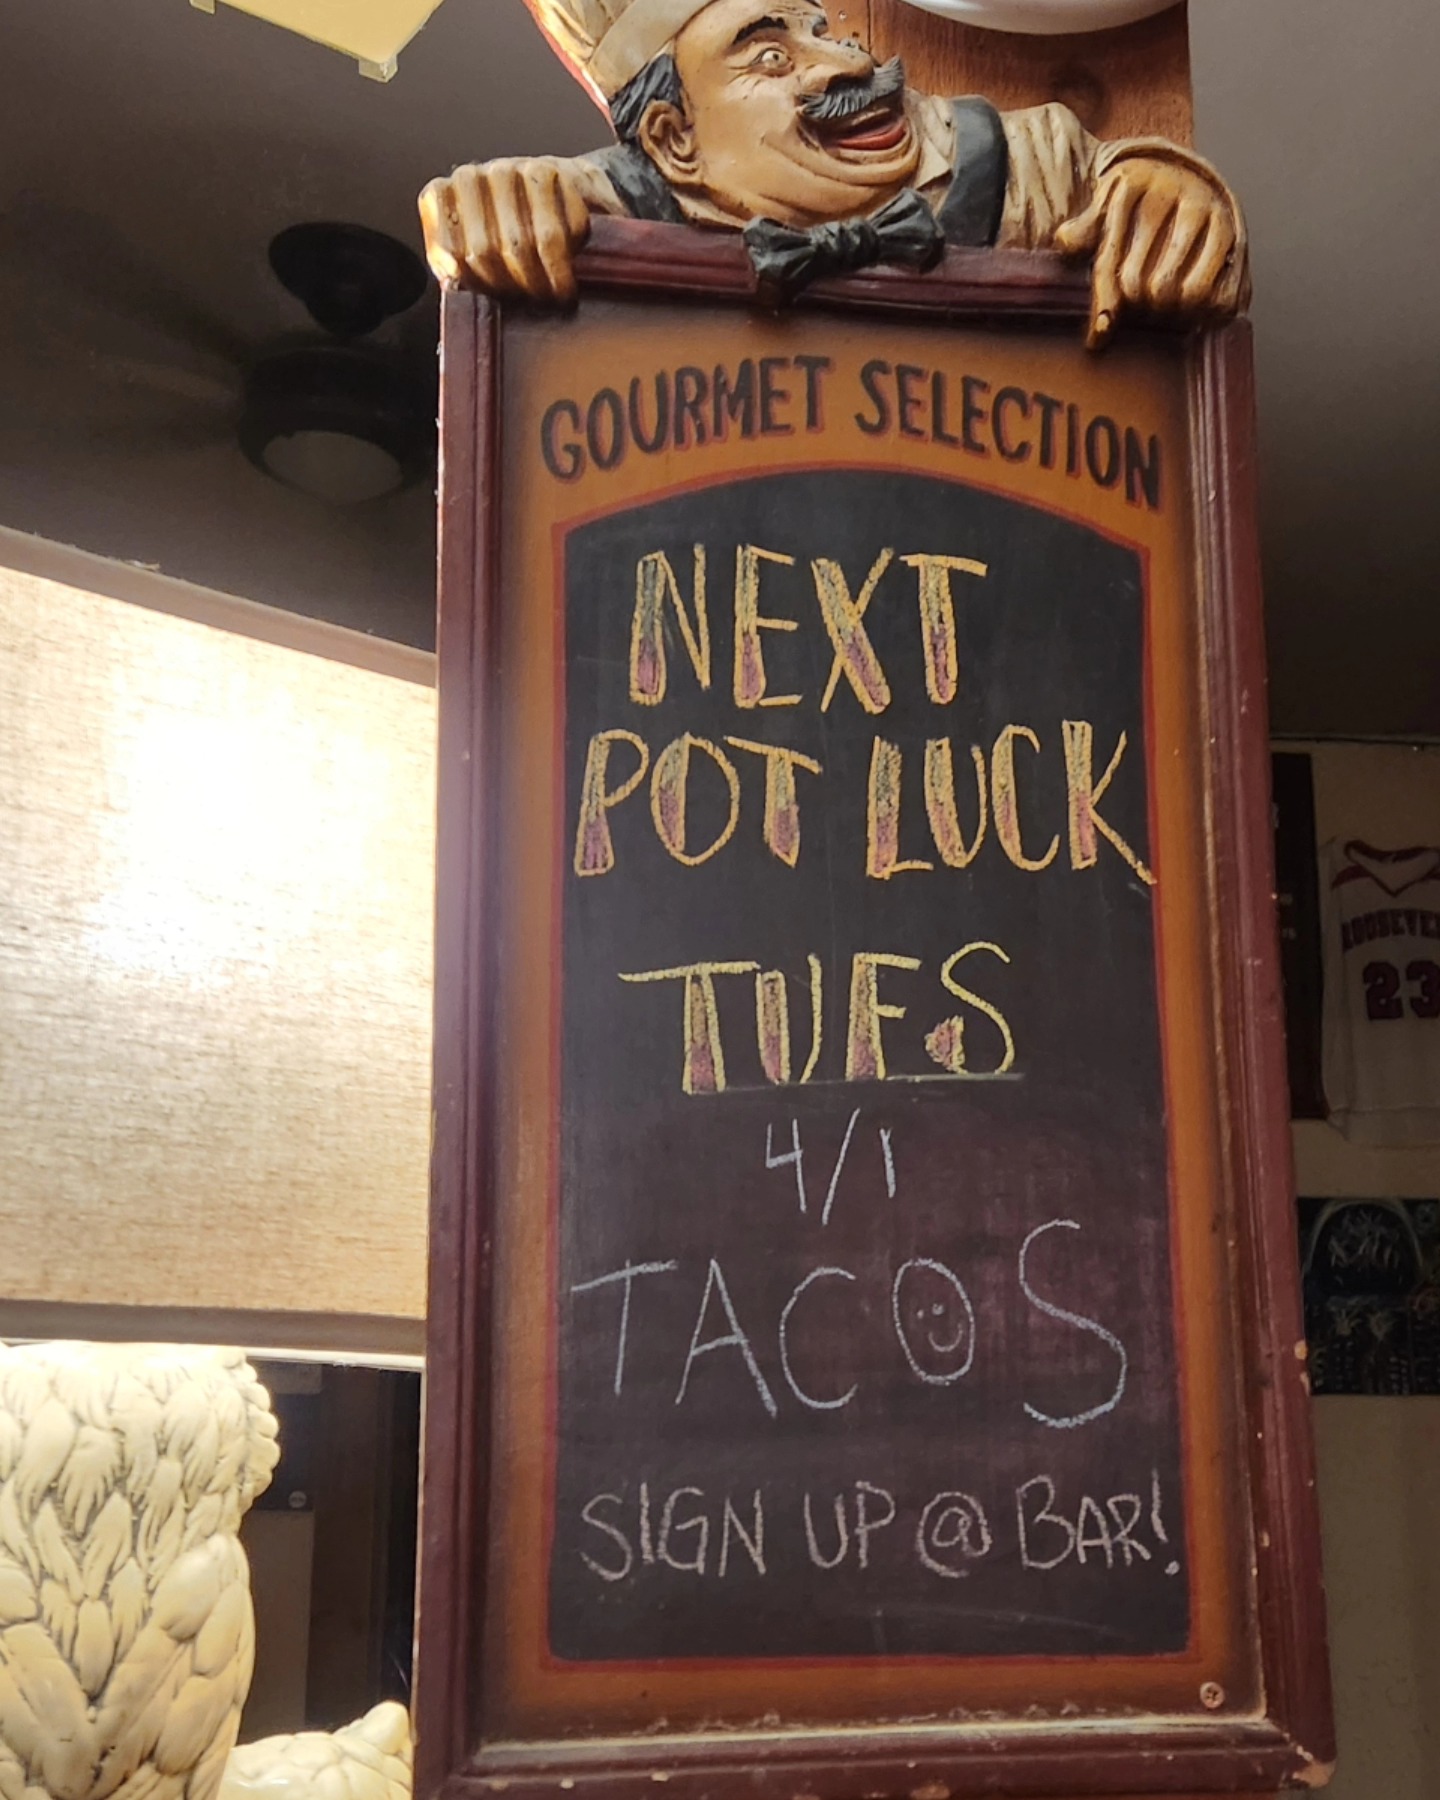 GOURMET SELECTION
NEXT
POT LUCK
TUES
4/1
TACOS
SIGN UP @ BAR!
23